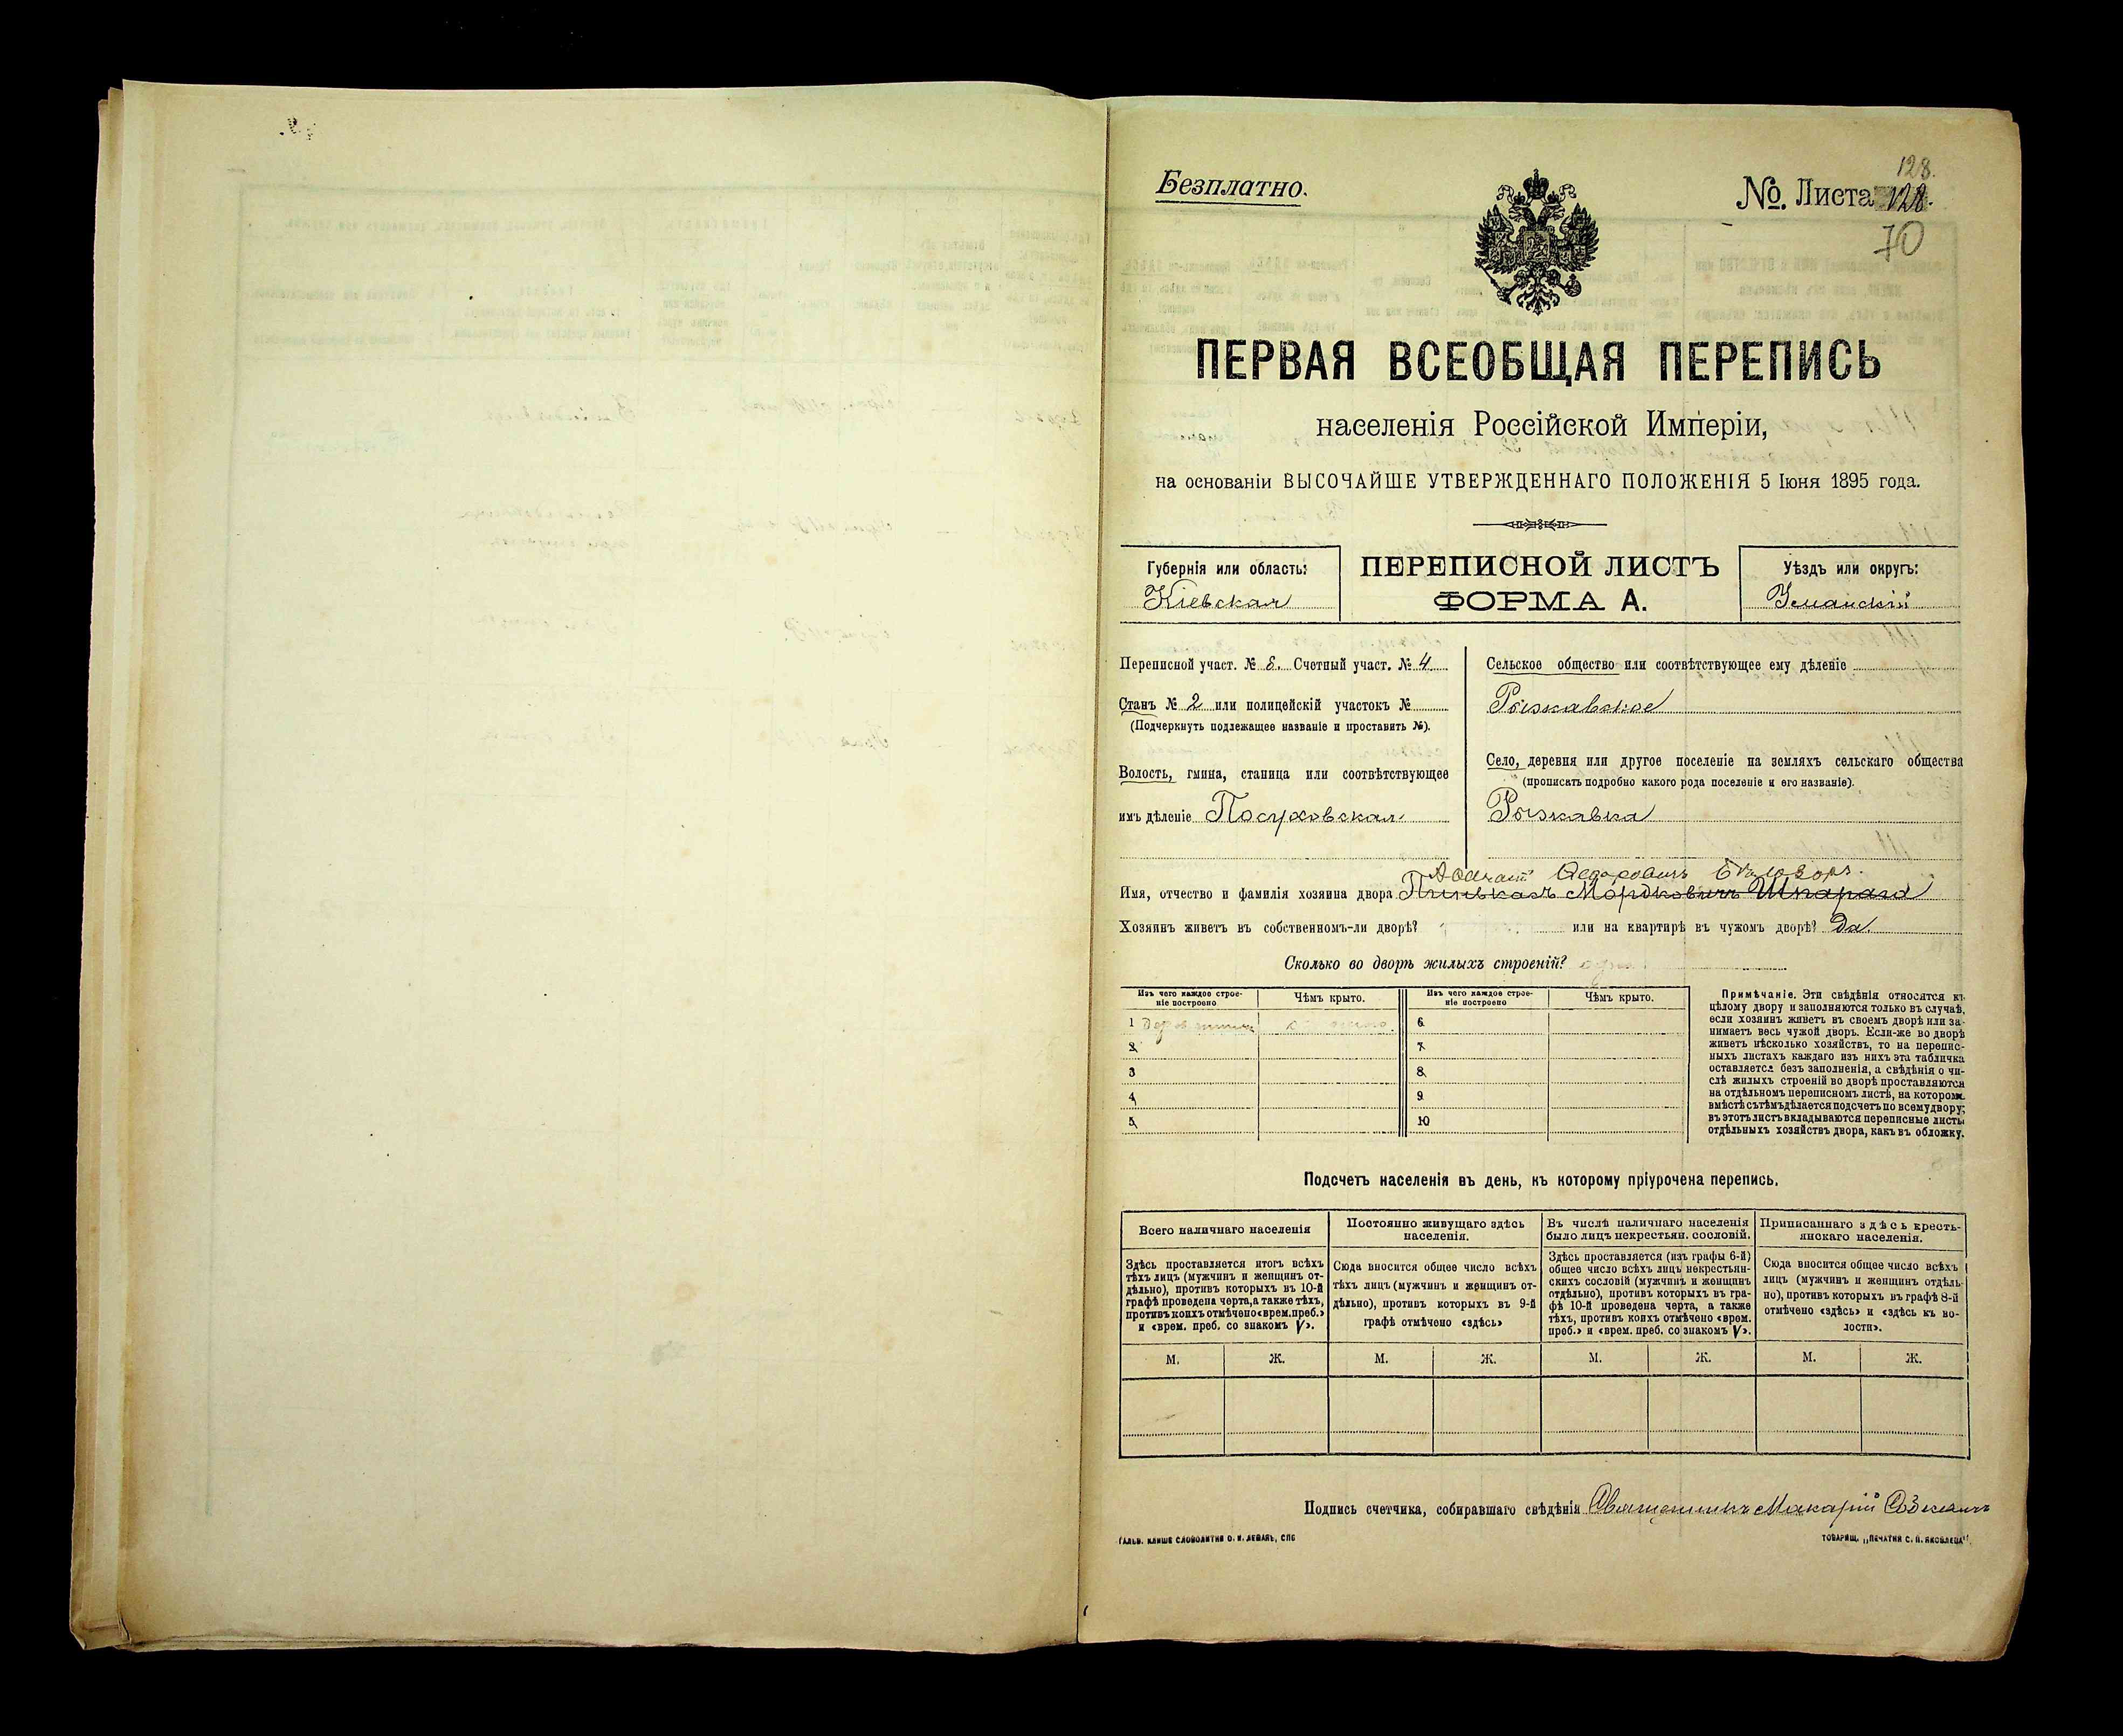 Безплатно.
128.
№. Листа 128.
70
ПЕРВАЯ ВСЕОБЩАЯ ПЕРЕПИСЬ
населенія Россійской Имперіи,
на основаніи ВЫСОЧАЙШЕ УТВЕРЖДЕННАГО ПОЛОЖЕНІЯ 5 Іюня 1895 года.
Губернія или область:
Кіевская
ПЕРЕПИСНОЙ ЛИСТЪ
ФОРМА А.
Уѣздъ или округъ:
Уманскій
Переписной участ. № 8. Счетный участ. № 4
Станъ № 2 или полицейскій участокъ №
(Подчеркнуть подлежащее названіе и проставить №).
Волость, гмина, станица или соотвѣтствующее
имъ дѣленіе Посуховская
Сельское общество или соотвѣтствующее ему дѣленіе
Рыжавское
Село, деревня или другое поселеніе на земляхъ сельскаго общества
(прописать подробно какого рода поселеніе и его названіе).
Рыжавка
Имя, отчество и фамилія хозяина двора Пинькасъ Мордковичъ Шпарага
Хозяинъ живетъ въ собственномъ-ли дворѣ? или на квартирѣ въ чужомъ дворѣ? Да.
Сколько во дворѣ жилыхъ строеній?
Изъ чего каждое строе-
ніе построено
Чѣмъ крыто.
Изъ чего каждое строе-
ніе построено
Чѣмъ крыто.
1
6
2
7
3
8
4
9
5
10
Примѣчаніе. Эти свѣдѣнія относятся къ
цѣлому двору и заполняются только въ случаѣ,
если хозяинъ живетъ въ своемъ дворѣ или за-
нимаетъ весь чужой дворъ. Если-же во дворѣ
живетъ нѣсколько хозяйствъ, то на перепис-
ныхъ листахъ каждаго изъ нихъ эта табличка
оставляется безъ заполненія, а свѣдѣнія о чи-
слѣ жилыхъ строеній во дворѣ проставляются
на отдѣльномъ переписномъ листѣ, на которомъ
вмѣстѣ съ тѣмъ дѣлается подсчетъ по всему двору;
въ этотъ листъ вкладываются переписные листы
отдѣльныхъ хозяйствъ двора, какъ въ обложку.
Подсчетъ населенія въ день, къ которому пріурочена перепись.
Всего наличнаго населенія
Постоянно живущаго здѣсь
населенія.
Въ числѣ наличнаго населенія
было лицъ некрестьян. сословій.
Приписаннаго здѣсь кресть-
янскаго населенія.
Здѣсь проставляется итогъ всѣхъ
тѣхъ лицъ (мужчинъ и женщинъ от-
дѣльно), противъ которыхъ въ 10-й
графѣ проведена черта, а также тѣхъ,
противъ коихъ отмѣчено «врем. преб.»
и «врем. преб. со знакомъ V».
Сюда вносится общее число всѣхъ
тѣхъ лицъ (мужчинъ и женщинъ от-
дѣльно), противъ которыхъ въ 9-й
графѣ отмѣчено «здѣсь»
Здѣсь проставляется (изъ графы 6-й)
общее число всѣхъ лицъ некрестьян-
скихъ сословій (мужчинъ и женщинъ
отдѣльно), противъ которыхъ въ гра-
фѣ 10-й проведена черта, а также
тѣхъ, противъ коихъ отмѣчено «врем.
преб.» и «врем. преб. со знакомъ V».
Сюда вносится общее число всѣхъ
лицъ (мужчинъ и женщинъ отдѣль-
но), противъ которыхъ въ графѣ 8-й
отмѣчено «здѣсь» и «здѣсь къ во-
лости».
М. Ж. М. Ж. М. Ж. М. Ж.
Подпись счетчика, собиравшаго свѣдѣнія Священникъ Макарій
ГАЛЬВ. КЛИШЕ СЛОВОЛИТНИ О. И. ЛЕМАНЪ, СПБ
ТОВАРИЩ. „ПЕЧАТНЯ С. П. ЯКОВЛЕВА“